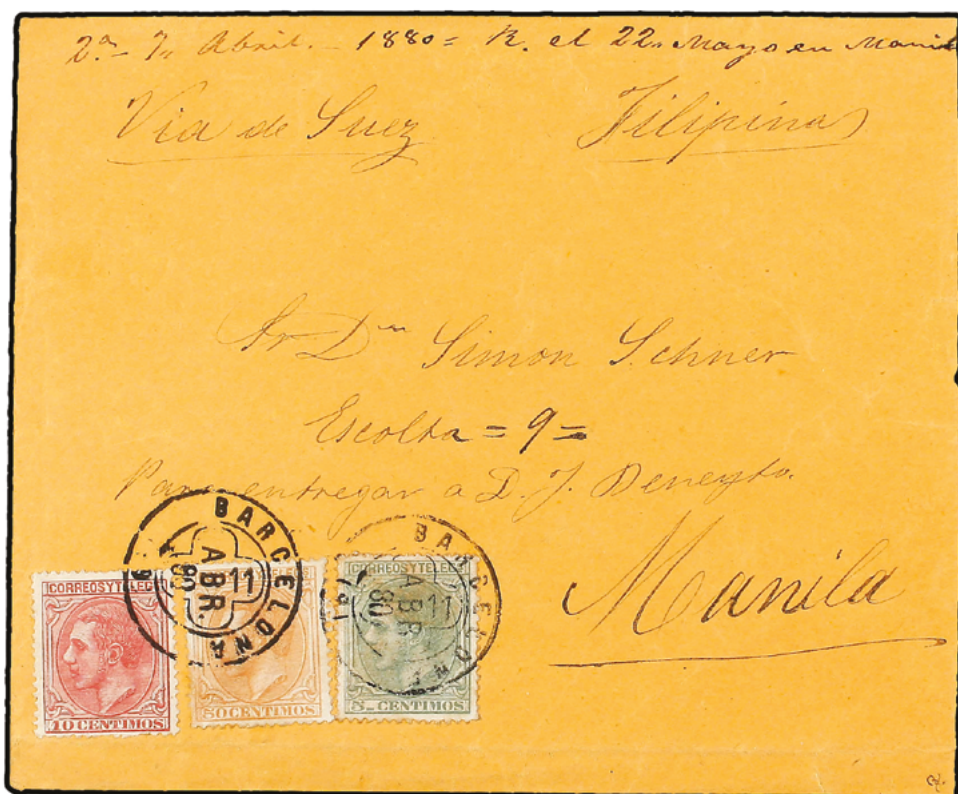 2ª - 7, Abril. - 1880 = R. el 22, Mayo en Mani
Via de Suez Filipinas
Sr Dn Simon Schner
Escolta = 9 =
Para entregar a D. J.
Manila
BARCELONA 11 ABR. 80
BARCELONA 11 ABR. 80
CORREOS Y TELEG
CORREOS Y TELEG
10 CENTIMOS
50 CENTIMOS
5 CENTIMOS